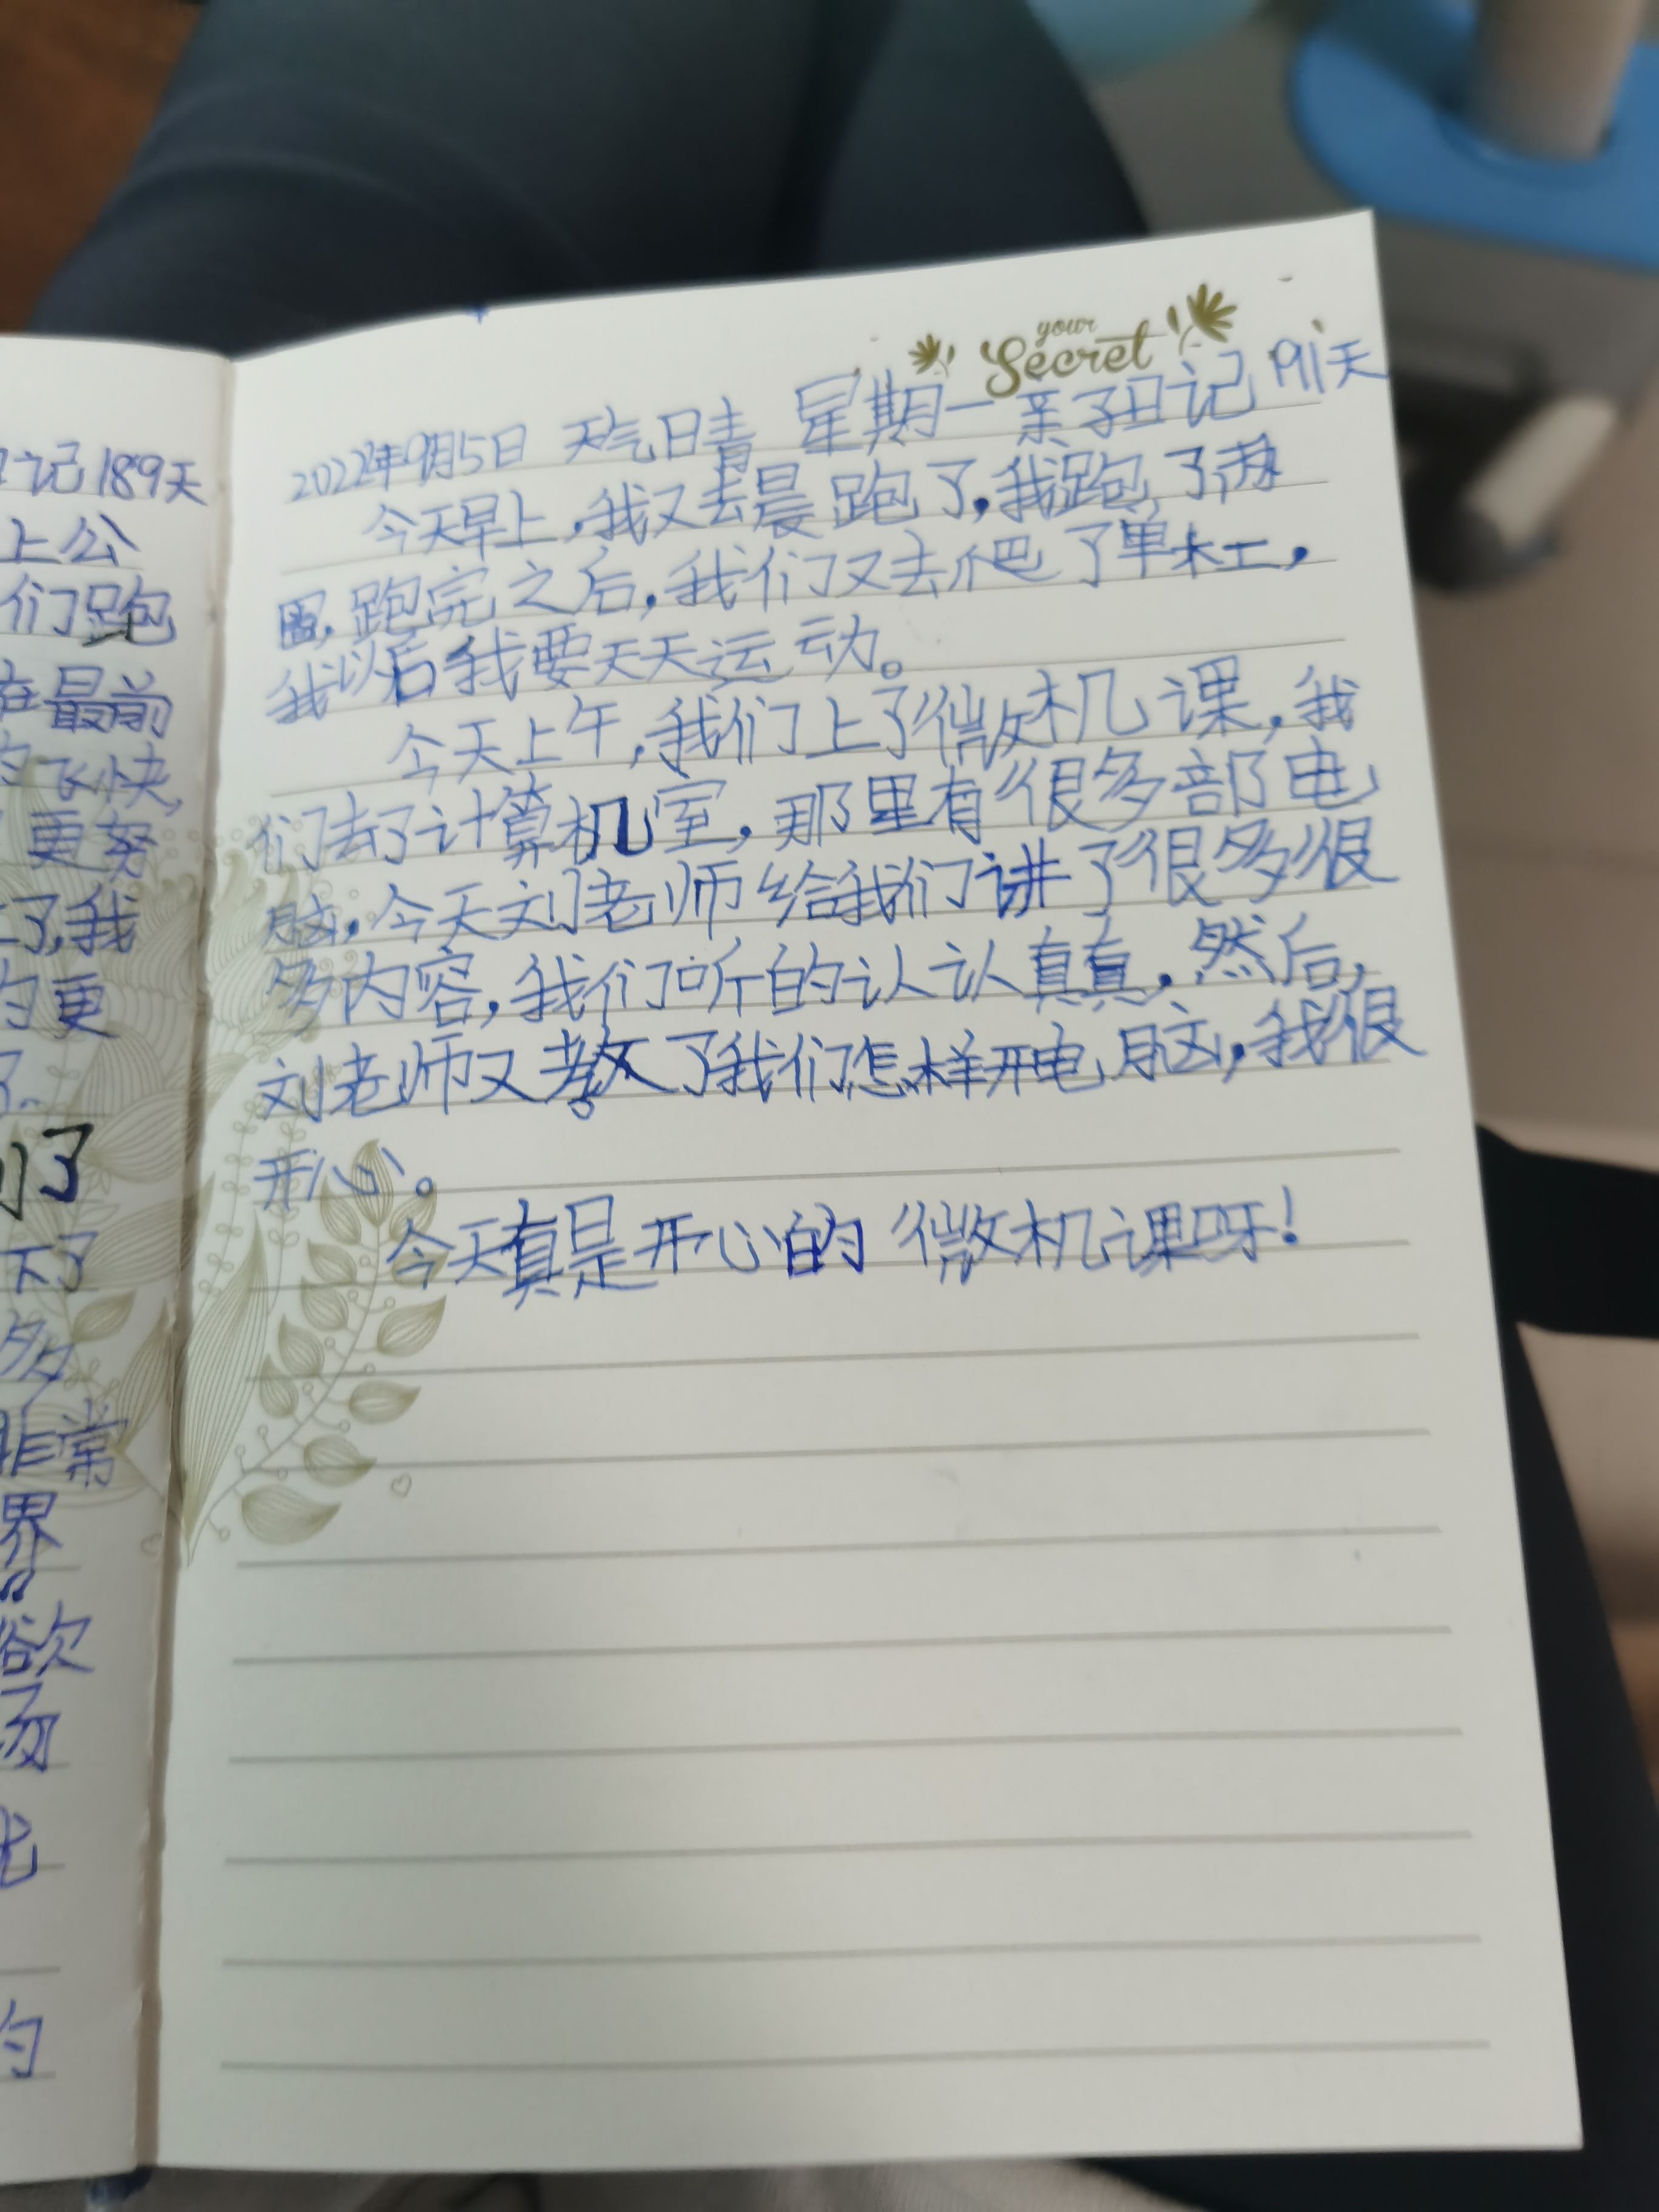 your
Secret
2022年9月5日 天气日青 星期一亲子日记191天
今天早上,我又去晨跑了,我跑了两
圈,跑完之后,我们又去爬了单杠,
我以后我要天天运动。
今天上午,我们上了微机课,我
们去了计算机室,那里有很多部电
脑,今天刘老师给我们讲了很多很
多内容,我们听的认认真真,然后,
刘老师又教了我们怎样开电脑,我很
开心。
今天真是开心的微机课呀!
日记189天
上公
们跑
在最前
的飞快,
更努
了,我
的更
了
们了
下了
多
非常
界
欲
场
的